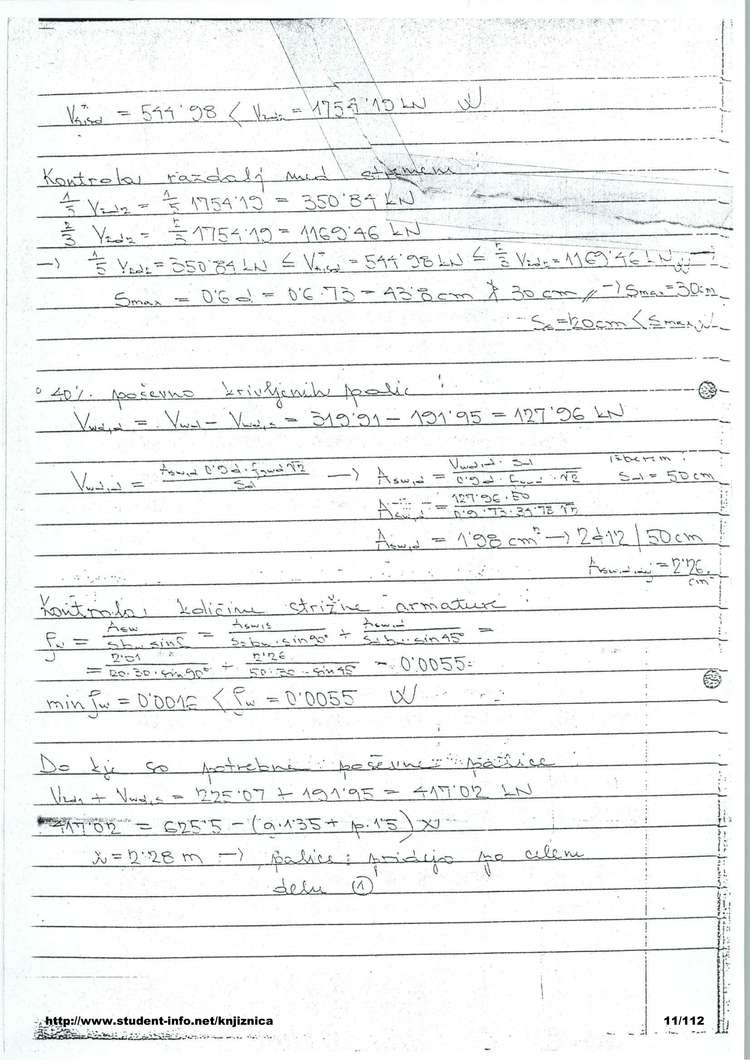 = 544'98 < V_Rd2 = 1754'19 kN
Kontrola razdalj med stremeni:
1/5 V_Rd2 = 1/5 1754'19 = 350'84 kN
2/3 V_Rd2 = 1754'19 = 1169'46 kN
→ 1/5 V_Rd2 = 350'84 kN ≤ = 544'98 kN ≤ 2/3 V_Rd2 = 1169'46 kN
s_max = 0'6 d = 0'6·73 = 43'8 cm ≯ 30 cm // → s_max = 30 cm
= 20 cm < s_max
° 40% poševno krivljenih palic:
V_wd,d = V_wd - V_wd,s = 319'91 - 191'95 = 127'96 kN
izberem:
V_wd,d = A_sw,d 0'9d · f_ywd √2 / s_d → A_sw,d = V_wd,d · s_d / 0'9d · f_ywd · √2 s_d = 50 cm
A_sw,d = 127'96·50 / 0'9·73·34'78 √2
A_sw,d = 1'98 cm² → 2ϕ12 / 50 cm
= 2'26 cm²
Kontrola količine strižne armature:
ρ_w = A_sw / s b_w sin = A_sw,s / s_s b_w · sin 90° + A_sw,d / · sin 45° =
= 2'01 / 20·30·sin 90° + 2'26 / 50·30·sin 45° = 0'0055
min ρ_w = < ρ_w = 0'0055
Do kje so potrebne poševne palice:
V_Rd1 + V_wd,s = 225'07 + 191'95 = 417'02 kN
417'02 = 625'5 - (g·1'35 + p·1'5) x
x = 2'28 m → palice pridejo po celem
delu ①
http://www.student-info.net/knjiznica 11/112